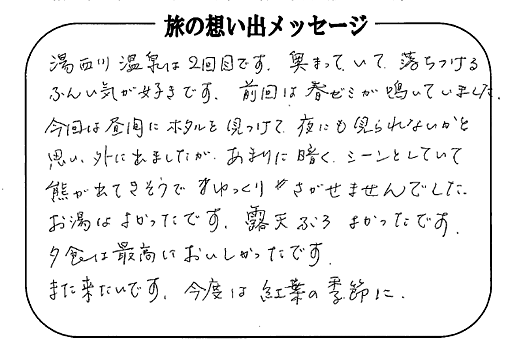 旅の想い出メッセージ
湯西川温泉は2回目です。奥まっていて、落ちつける
ふんい気が好きです。前回は春ゼミが鳴いていました。
今回は昼間にホタルを見つけて、夜にも見られないかと
思い、外に出ましたが、あまりに暗く、シーンとしていて
熊が出てきそうで"ゆっくり"さがせませんでした。
お湯はよかったです。露天ぶろ よかったです。
夕食は最高においしかったです。
また来たいです。今度は紅葉の季節に。